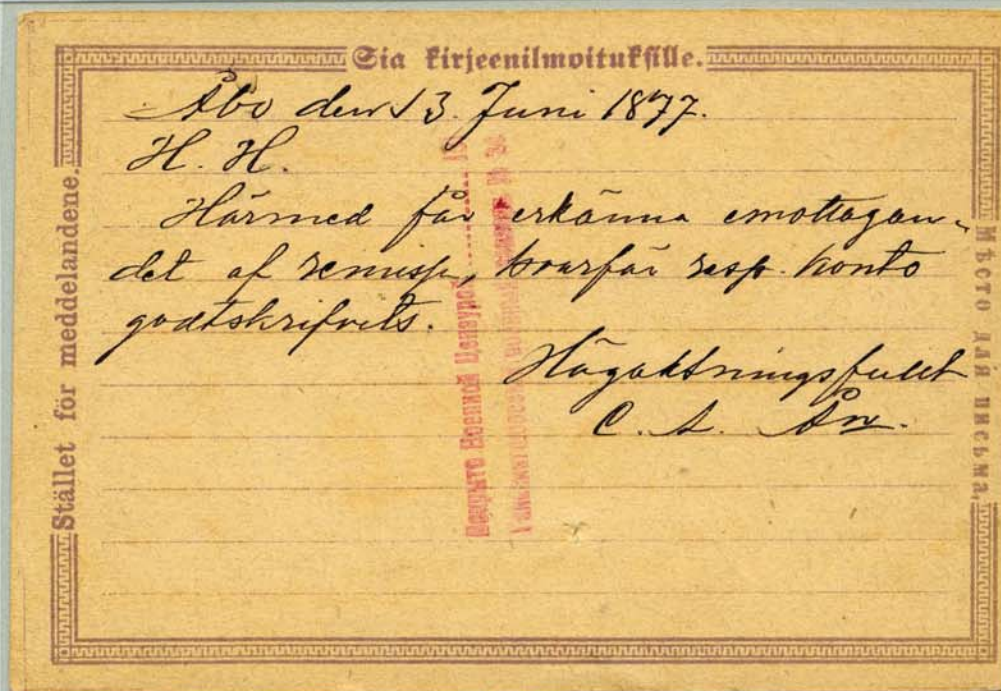 Sia kirjeenilmoituksille.
Stället för meddelandene.
Åbo den 13. Juni 1877.
H. H.
Härmed får erkänna emottagan-
det af remissn, hvarför resp. konto
godtskrifvits.
Högaktningsfullt
C. A.
Мѣсто для письма.
Военной Цензурой